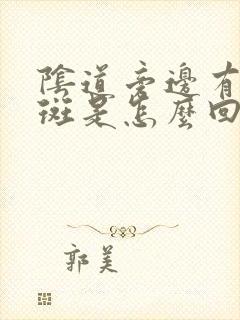 陰道旁邊有
斑是怎麼回
郭美